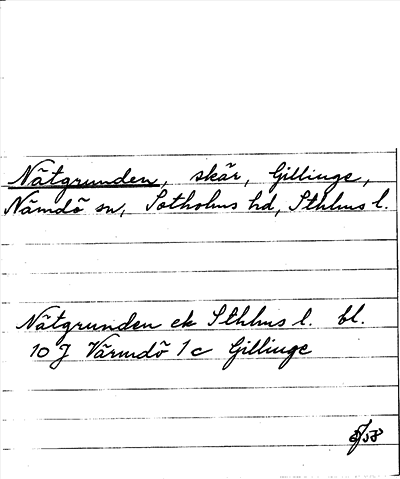 Nätgrunden, skär, Gillinge,
Nämdö sn, Sotholms hd, Sthlms l.
Nätgrunden ek Sthlms l. bl.
10 J Värmdö 1 c Gillinge